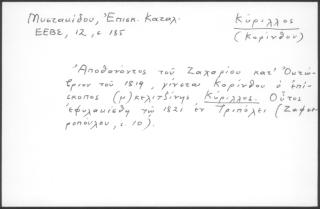 Μυστακίδου, Ἐπισκ. Καταλ.
ΕΕΒΣ, 12, σ 185
Κύριλλος
(Κορίνθου)
Ἀποθανόντος τοῦ Ζαχαρίου κατ' Ὀκτώ-
βριον τοῦ 1819, γίνεται Κορίνθου ὁ ἐπί-
σκοπος (μ)κελιτζίνης Κύριλλος. Οὗτος
ἐφυλακίσθη τῷ 1821 ἐν Τριπόλει (Ζαφει-
ροπούλου, σ. 10).